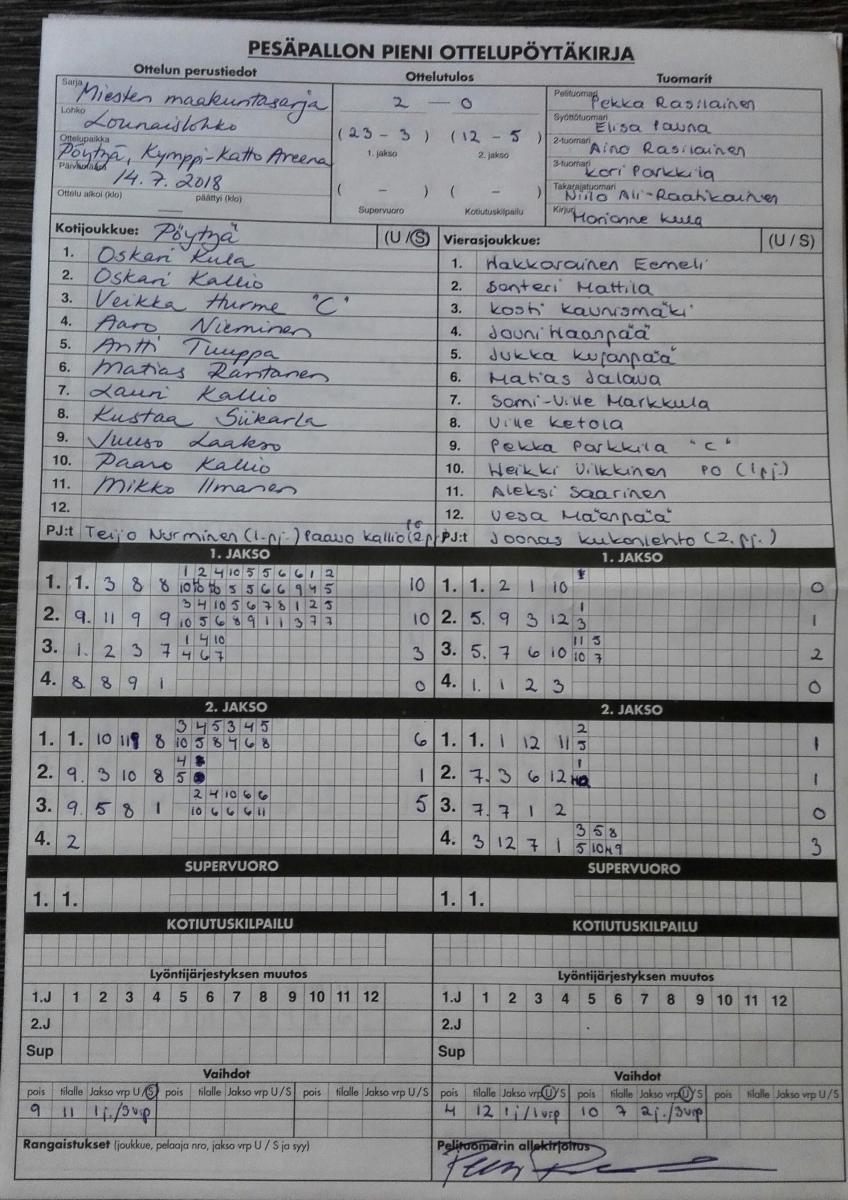 PESÄPALLON PIENI OTTELUPÖYTÄKIRJA
Ottelun perustiedot
Sarja Miesten maakuntasarja
Lohko Lounaislohko
Ottelupaikka Pöytyä, Kymppi-Katto Areena
14.7.2018
Ottelu alkoi (klo) päättyi (klo)
Ottelutulos
2 — 0
(23 - 3) (12 - 5)
1. jakso 2. jakso
( - ) ( - )
Supervuoro Kotiutuskilpailu
Tuomarit
Pelituomari Pekka Rasilainen
Syöttötuomari Elisa
2-tuomari Aino Rasilainen
3-tuomari Kari Parkkila
Takarajatuomari Niilo Ali-Raatikainen
Kirjuri Marianne Kula
Kotijoukkue: Pöytyä (U / S)
1. Oskari Kula
2. Oskari Kallio
3. Veikka Hurme "C"
4. Aaro Nieminen
5. Antti Tuuppa
6. Matias Rantanen
7. Lauri Kallio
8. Kustaa Siikarla
9. Juuso Laakso
10. Paavo Kallio
11. Mikko Ilmanen
12.
PJ:t Teijo Nurminen (1.pj.) Paavo Kallio
Vierasjoukkue: (U / S)
1. Hakkarainen Eemeli
2. Santeri Mattila
3. Kosti Kaunismäki
4. Jouni Haanpää
5. Jukka Kujanpää
6. Matias Jalava
7. Sami-Ville Markkula
8. Ville Ketola
9. Pekka Parkkila "C"
10. Heikki Vilkkinen PO (1pj.)
11. Aleksi Saarinen
12. Vesa Mäenpää
PJ:t Joonas Kukonlehto (2.pj.)
1. JAKSO
1 2 4 10 5 5 6 6 1 2
1. 1. 3 8 8
10
3 4 10 5 6 7 8 1 2 5
2. 9. 11 9 9 10 5 6 8 9 1 1 3 7 7 10
1 4 10
3. 1. 2 3 7 4 6 7 3
4. 8 8 9 1 0
1. JAKSO
1. 1. 2 1 10 0
1
2. 5. 9 3 12 3 1
11 5
3. 5. 7 6 10 10 7 2
4. 1. 1 2 3 0
2. JAKSO
3 4 5 3 4 5
1. 1. 10 8 10 5 8 4 6 8 6
4
2. 9. 3 10 8 5 1
2 4 10 6 6
3. 9. 5 8 1 10 6 6 6 11 5
4. 2
2. JAKSO
2
1. 1. 1 12 11 5 1
1
2. 7. 3 6 12 1
3. 7. 7 1 2 0
3 5 8
4. 3 12 7 1 5 10 9 3
SUPERVUORO
1. 1.
SUPERVUORO
1. 1.
KOTIUTUSKILPAILU
KOTIUTUSKILPAILU
Lyöntijärjestyksen muutos
1.J 1 2 3 4 5 6 7 8 9 10 11 12
2.J
Sup
Lyöntijärjestyksen muutos
1.J 1 2 3 4 5 6 7 8 9 10 11 12
2.J
Sup
Vaihdot
pois tilalle Jakso vrp U / S pois tilalle Jakso vrp U / S pois tilalle Jakso vrp U / S
9 11 1j./3vrp
Vaihdot
pois tilalle Jakso vrp U / S pois tilalle Jakso vrp U / S pois tilalle Jakso vrp U / S
4 12 1j/1vrp 10 7 2j./3vrp
Rangaistukset (joukkue, pelaaja nro, jakso vrp U / S ja syy)
Pelituomarin allekirjoitus